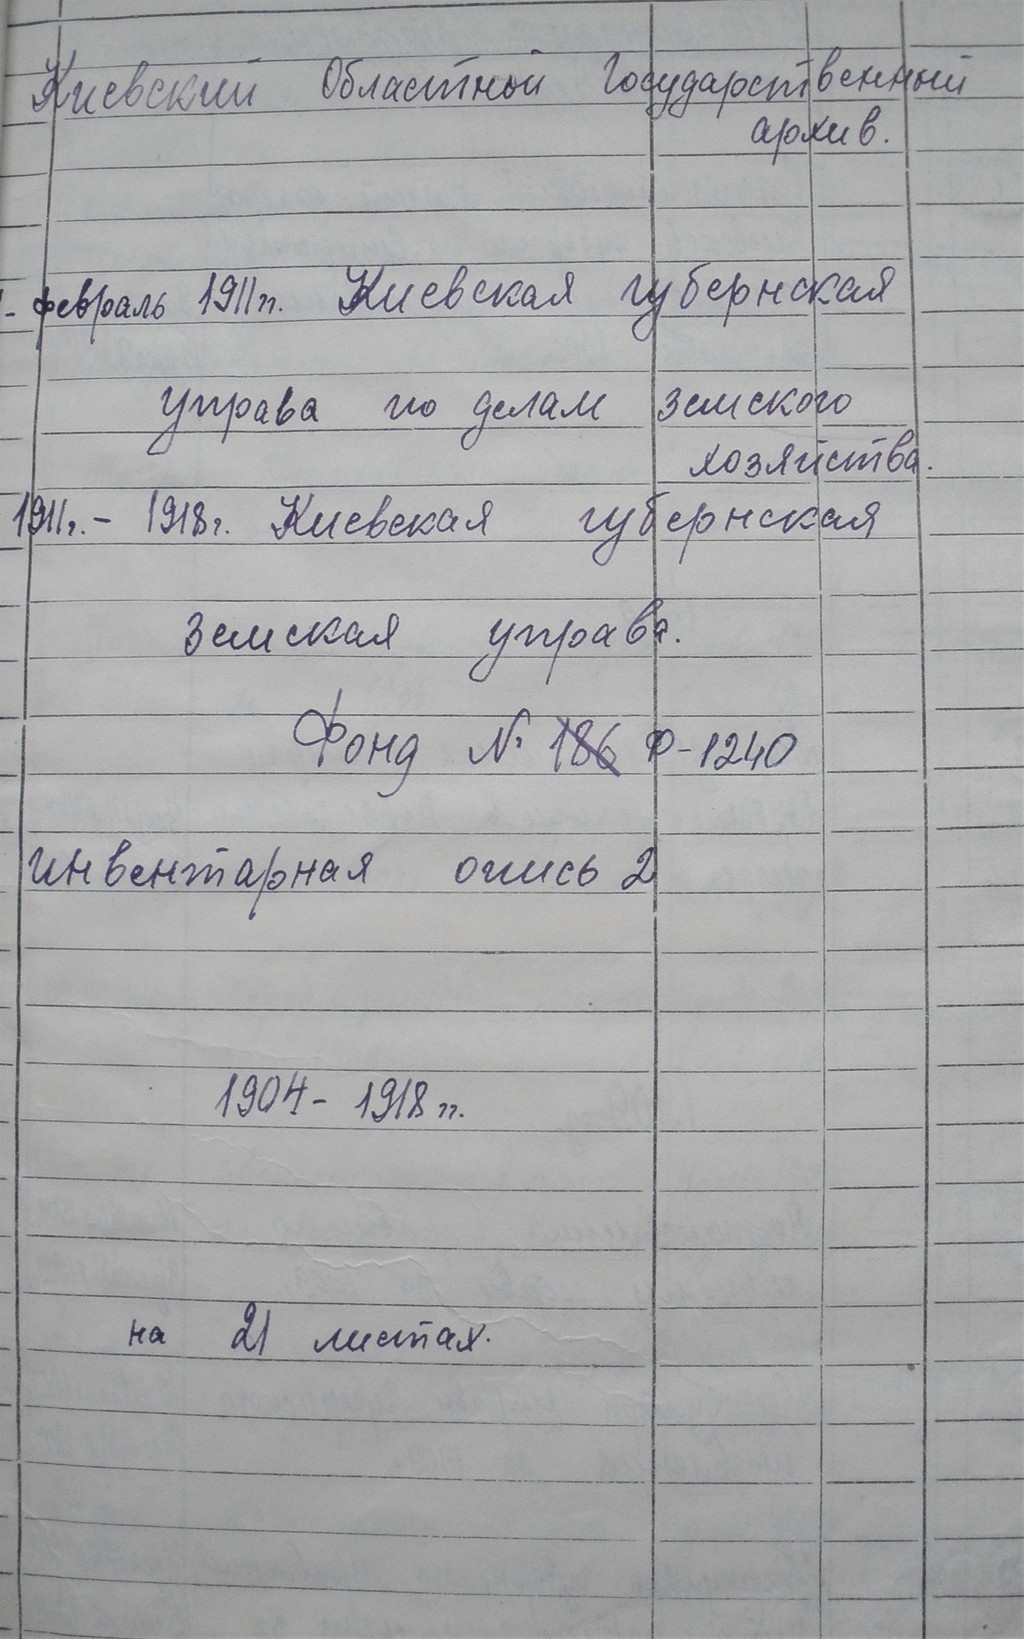 Киевский Областной Государственный
архив.
- февраль 1911гг. Киевская губернская
управа по делам земского
хозяйства.
1911г. - 1918г. Киевская губернская
земская управа.
Фонд № 186 Ф-1240
Инвентарная опись 2
1904 - 1918 гг.
на 21 листах.